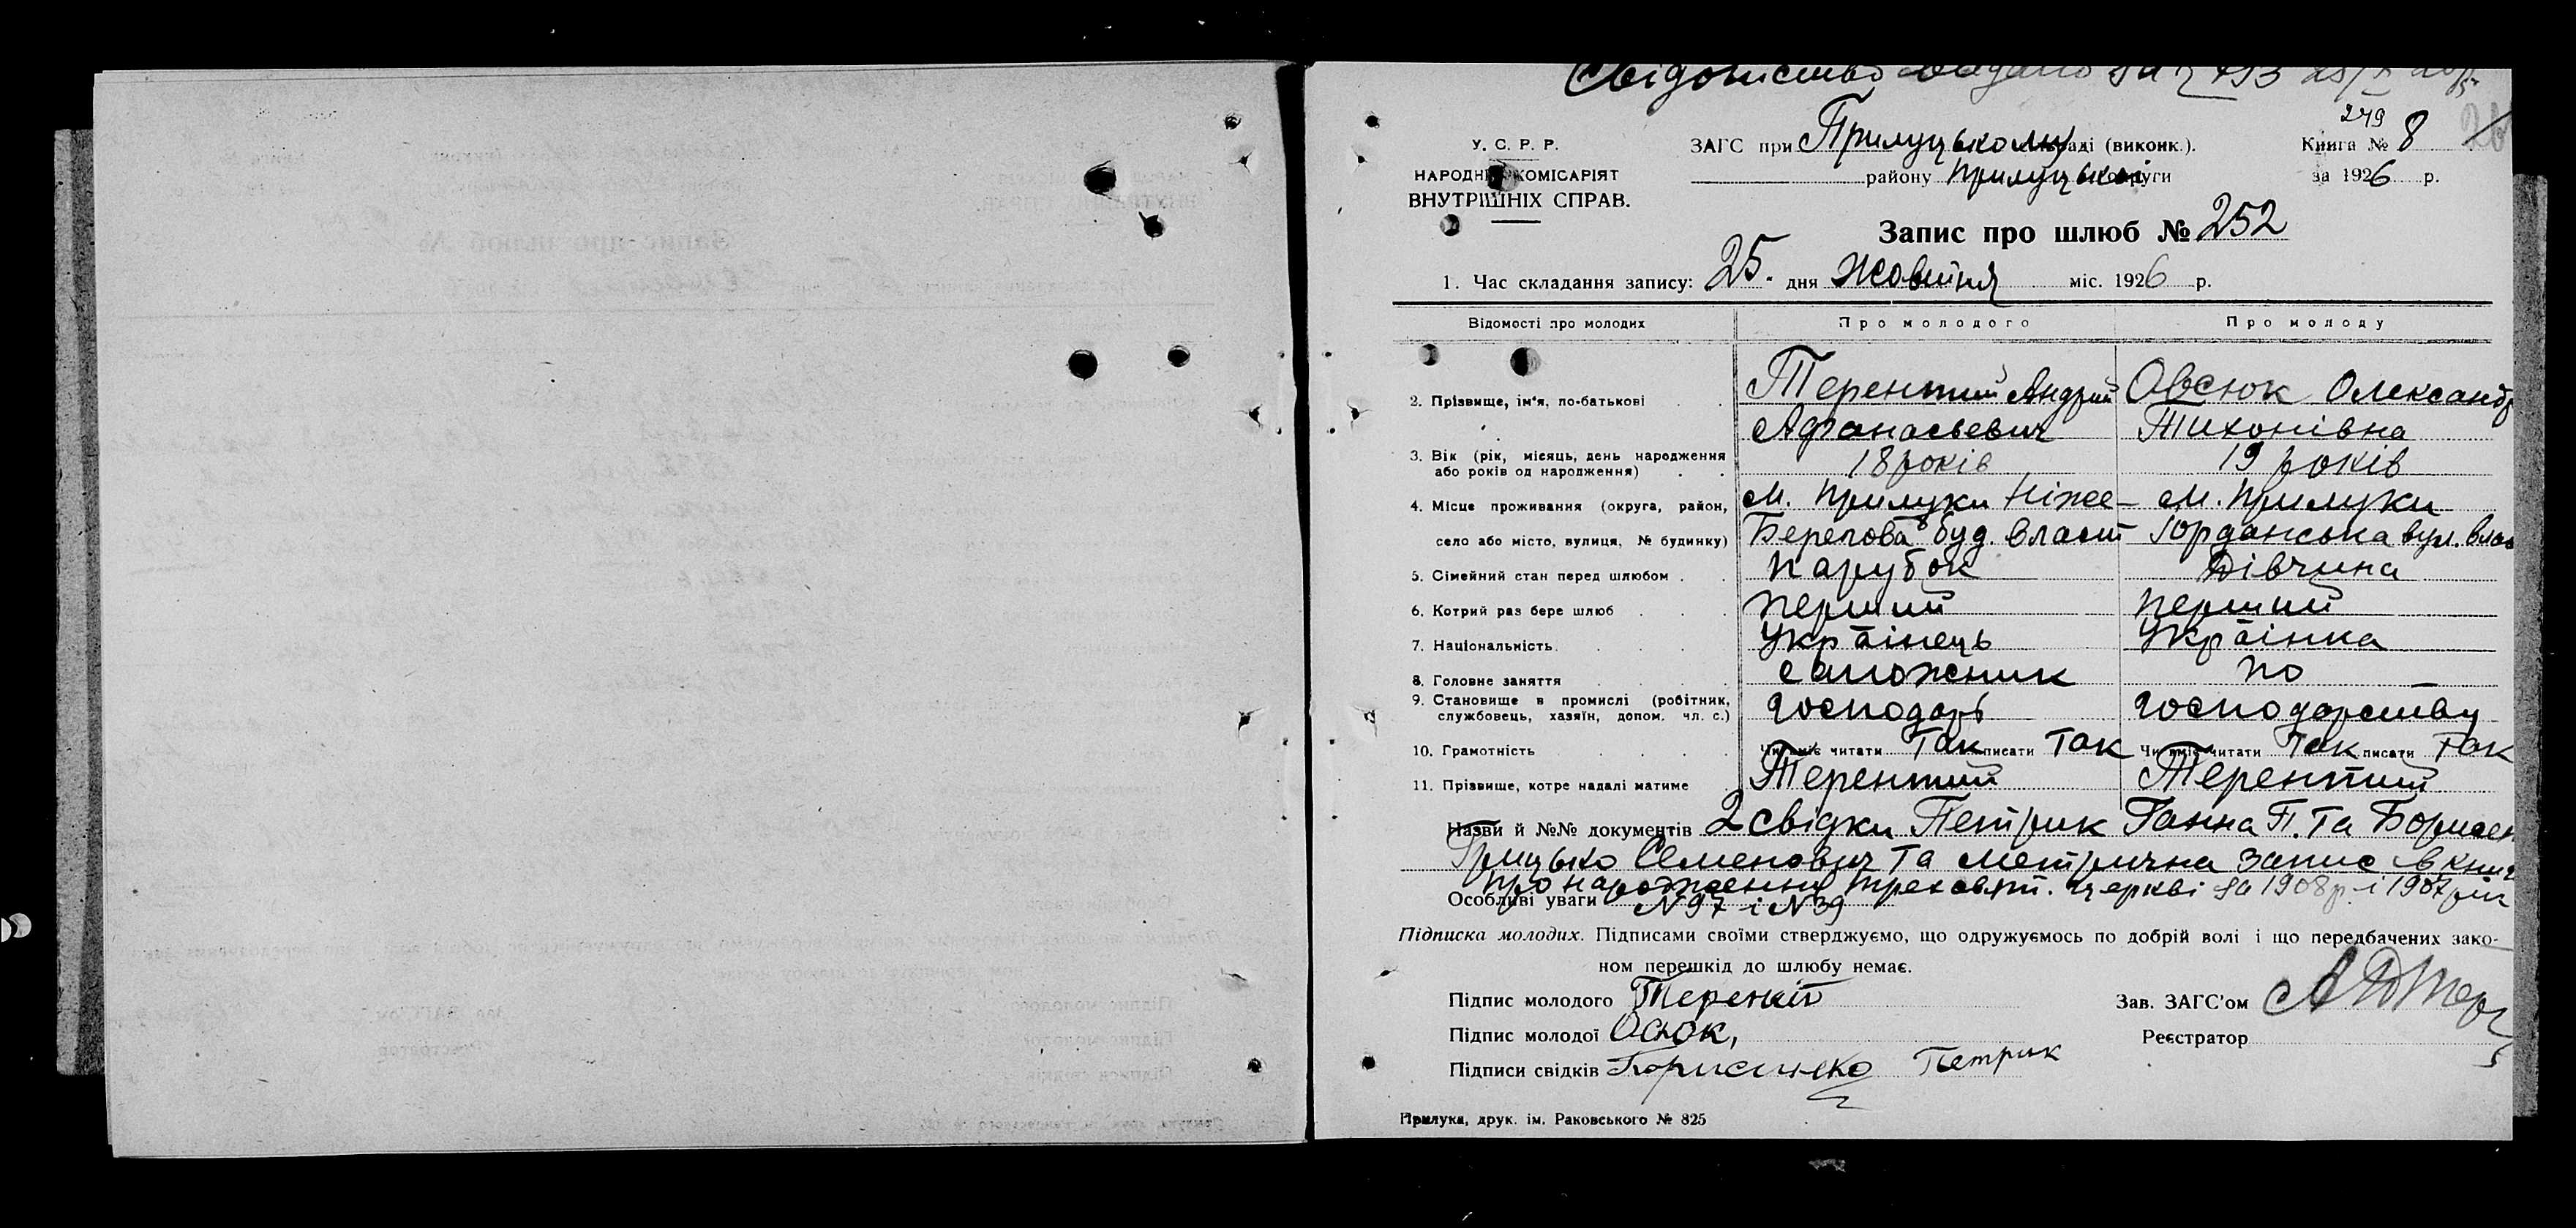 Свідоцтво видано за № 793 25/X 26 р.
249
У. С. Р. Р.
ЗАГС при Прилуцькому раді (виконк.). Книга № 8
НАРОДНІЙ КОМІСАРІЯТ
району Прилуцької округи за 1926 р.
ВНУТРІШНІХ СПРАВ.
Запис про шлюб № 252
1. Час складання запису: 25. дня Жовтня міс. 1926 р.
Відомості про молодих Про молодого Про молоду
2. Прізвище, ім'я, по-батькові Терентий Андрий Овсюк Олександр
Афанасьевич Тихонівна
3. Вік (рік, місяць, день народження
або років од народження) 18 років 19 років
4. Місце проживання (округа, район, м. Прилуки Ніже- м. Прилуки
село або місто, вулиця, № будинку) Берегова 8 буд. власт Юрданська вул. влас
5. Сімейний стан перед шлюбом парубок Дівчина
6. Котрий раз бере шлюб перший перший
7. Національність Українець Українка
8. Головне заняття сапожник по
9. Становище в промислі (робітник,
службовець, хазяїн, допом. чл. с.) господарь господарству
10. Грамотність Чи вміє читати Так писати Так Чи вміє читати Так писати Так
11. Прізвище, котре надалі матиме Терентий Терентий
Назви й №№ документів 2 свідки Петрик Ганна П. та Борисен
Грицько Семенович та метрична запис в книг
про народження Трехсвят. церкві за 1908 р і 1907 рік
Особливі уваги N 97 і N 39
Підписка молодих. Підписами своїми стверджуємо, що одружуємось по добрій волі і що передбачених зако-
ном перешкід до шлюбу немає.
Підпис молодого Терентій Зав. ЗАГС'ом
Підпис молодої Овсюк, Реєстратор
Підписи свідків Борисенко Петрик
Прилука, друк. ім. Раковського № 825